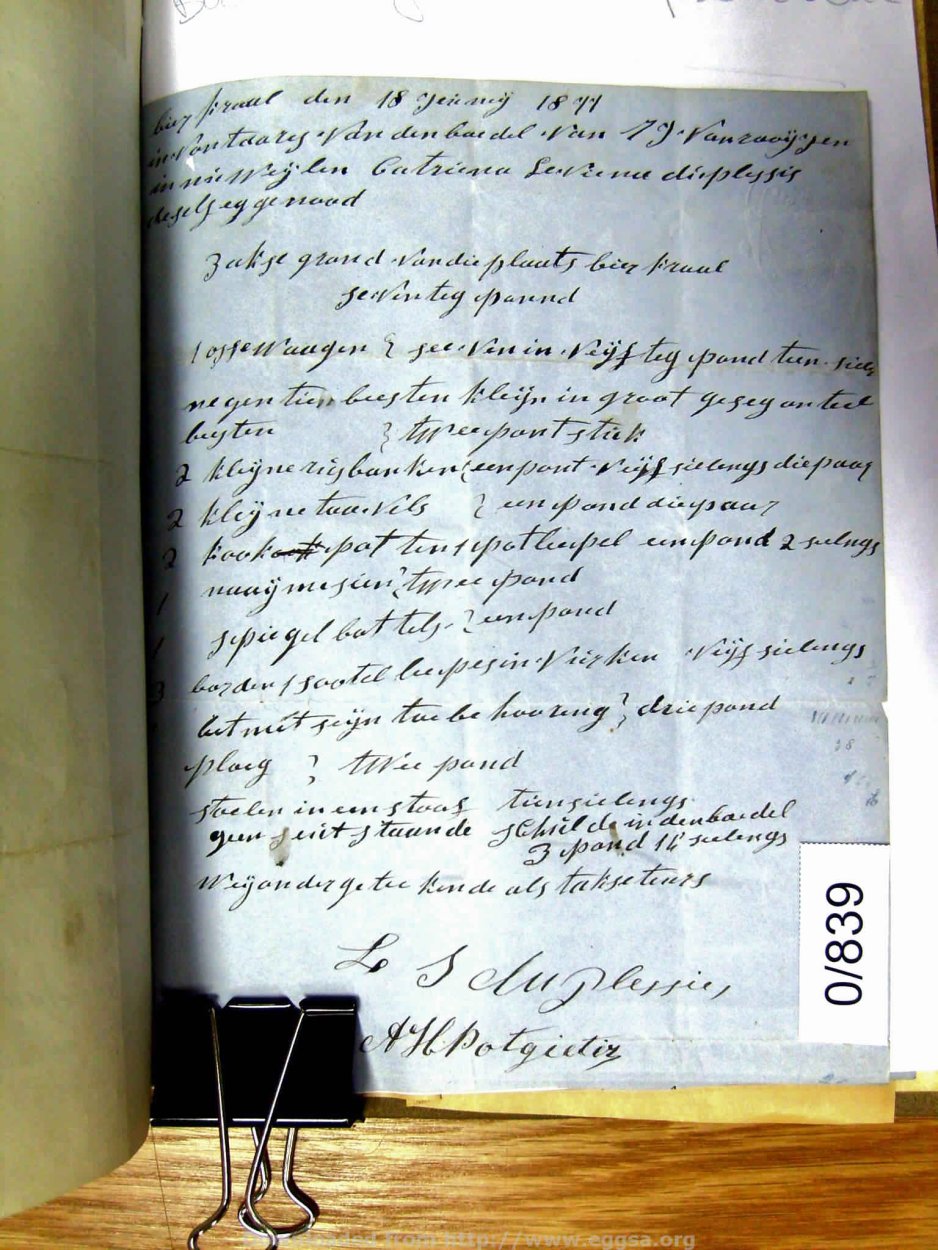 bier kraal den 18 Jeuneij 1871
in Vontaares Van den boedel Van T J Vanrooijyen
in nie Weijlen Catriena Leviena dieplessis
deselfs eggenood
3 akse grond Van die plaats bier kraal
seventeg pannd
1 osse Waagen } see Ven in Veijf teg pond tien siel
negen tien beesten kleijn in groot geseg an teel
beesten } twee pont stuk
2 kleijne rusbanken } een pont Veijf sielengs die paar
2 kleijne taavels } een pond die paar
2 kook pot ten 1 pot leepel een pond 2 sielings
1 naaij mesien } twee pond
1 spiegel bottels } een pond
3 borden 1 sootel leepes in Vurken Veijf sielengs
met seijn toe be hooreng } drie pond
ploeg } twee pond
stoelen in een stoof tien sielengs
geen eeit staande schulde in den boedel
3 pond 14 sielengs
Weij onder getee kende als takseteurs
L S duplessies
A H Potgieter
0/839
from http://www.eggsa.org